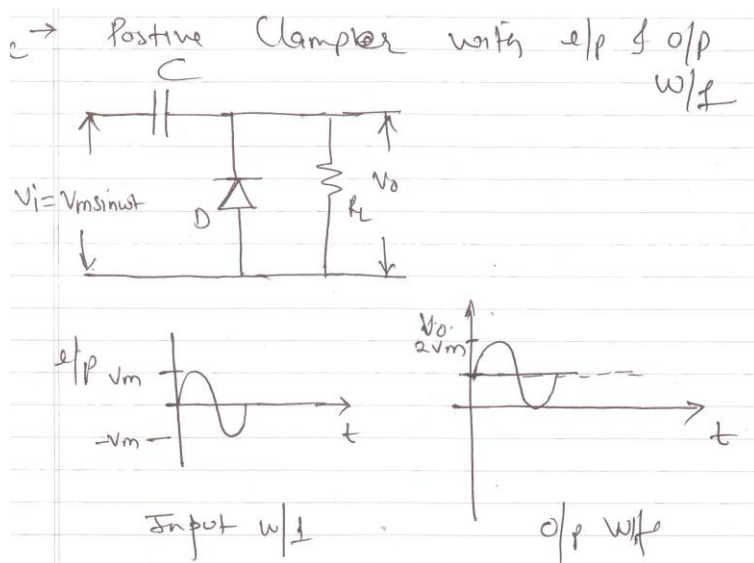 c → Postive Clamper with i/p & o/p
w/f
C
Vi = Vmsinwt
D
RL
Vo
i/p
Vm
-Vm
t
Input w/f
Vo.
2Vm
t
O/p w/f